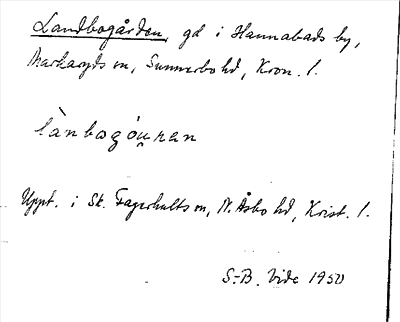 Landbogården, gd i Hannabads by,
Markaryds sn, Sunnerbo hd, Kron. l.
lànbogóu̯ren
Uppt. i Sk. Fagerhults sn, N. Åsbo hd, Krist. l.
S-B. Vide 1950